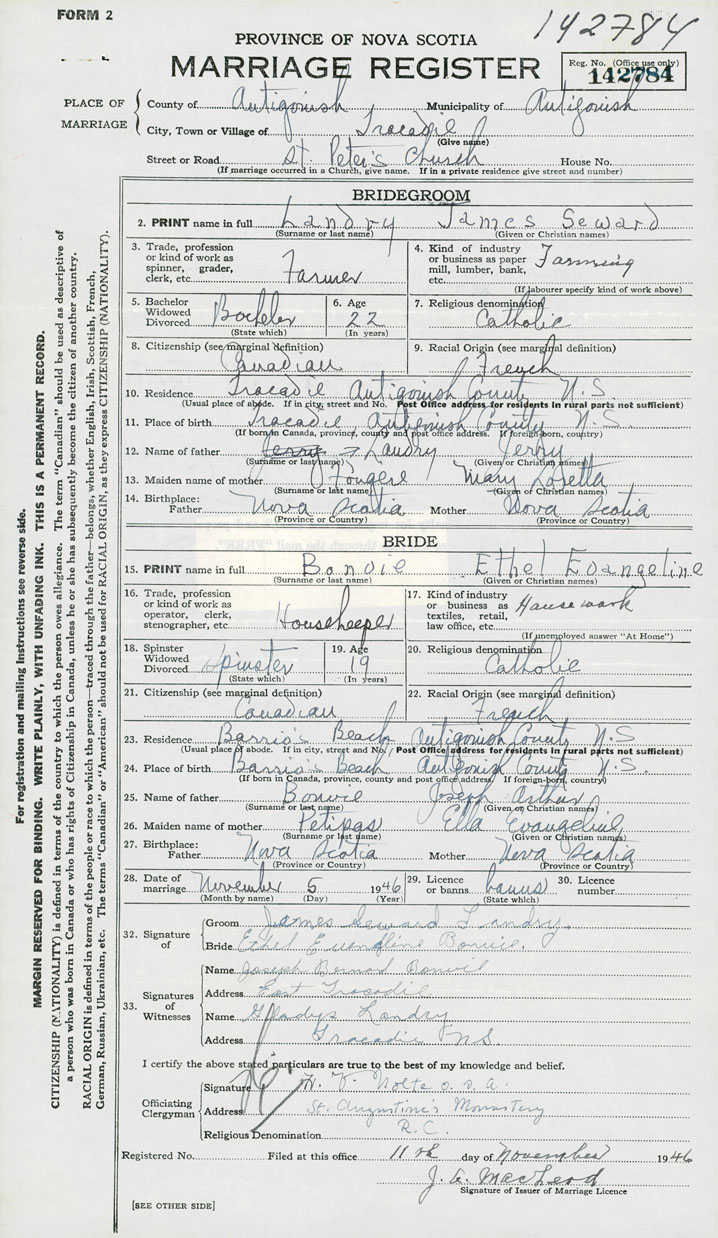 FORM 2
142784
PROVINCE OF NOVA SCOTIA
MARRIAGE REGISTER
Reg. No. (Office use only)
142784
PLACE OF MARRIAGE
County of Antigonish Municipality of Antigonish
City, Town or Village of Tracadie
(Give name)
Street or Road St. Peter's Church House No.
(If marriage occurred in a Church, give name. If in a private residence give street and number)
BRIDEGROOM
2. PRINT name in full Landry James Seward
(Surname or last name) (Given or Christian names)
3. Trade, profession or kind of work as spinner, grader, clerk, etc. Farmer
4. Kind of industry or business as paper mill, lumber, bank, etc. Farming
(If labourer specify kind of work above)
5. Bachelor Widowed Divorced Bachelor
(State which)
6. Age 22
(In years)
7. Religious denomination Catholic
8. Citizenship (see marginal definition) Canadian
9. Racial Origin (see marginal definition) French
10. Residence Tracadie Antigonish County N.S.
(Usual place of abode. If in city, street and No. Post Office address for residents in rural parts not sufficient)
11. Place of birth Tracadie, Antigonish County N.S.
(If born in Canada, province, county and post office address. If foreign-born, country)
12. Name of father Landry Jerry
(Surname or last name) (Given or Christian names)
13. Maiden name of mother Fougere Mary Loretta
(Surname or last name) (Given or Christian names)
14. Birthplace: Father Nova Scotia Mother Nova Scotia
(Province or Country) (Province or Country)
BRIDE
15. PRINT name in full Bonvie Ethel Evangeline
(Surname or last name) (Given or Christian names)
16. Trade, profession or kind of work as operator, clerk, stenographer, etc. Housekeeper
17. Kind of industry or business as textiles, retail, law office, etc. Housework
(If unemployed answer "At Home")
18. Spinster Widowed Divorced Spinster
(State which)
19. Age 19
(In years)
20. Religious denomination Catholic
21. Citizenship (see marginal definition) Canadian
22. Racial Origin (see marginal definition) French
23. Residence Barrio's Beach Antigonish County N.S
(Usual place of abode. If in city, street and No. Post Office address for residents in rural parts not sufficient)
24. Place of birth Barrio's Beach Antigonish County N.S.
(If born in Canada, province, county and post office address. If foreign-born, country)
25. Name of father Bonvie Joseph Arthur
(Surname or last name) (Given or Christian names)
26. Maiden name of mother Petipas Ella Evangeline
(Surname or last name) (Given or Christian names)
27. Birthplace: Father Nova Scotia Mother Nova Scotia
(Province or Country) (Province or Country)
28. Date of marriage November 5 1946
(Month by name) (Day) (Year)
29. Licence or banns banns
(State which)
30. Licence number
32. Signature of
Groom James Seward Landry.
Bride Ethel Evangline Bonvie.
33. Signatures of Witnesses
Name Joseph Bernard Bonvie
Address East Tracadie
Name Gladys Landry
Address Tracadie N.S.
I certify the above stated particulars are true to the best of my knowledge and belief.
Officiating Clergyman
Signature Nolte o.s.a.
Address St. Augustine's Monastery
Religious Denomination R.C.
Registered No. Filed at this office 11th day of November 1946
J. A. MacLeod
Signature of Issuer of Marriage Licence
[SEE OTHER SIDE]
For registration and mailing instructions see reverse side.
MARGIN RESERVED FOR BINDING. WRITE PLAINLY, WITH UNFADING INK. THIS IS A PERMANENT RECORD.
CITIZENSHIP (NATIONALITY) is defined in terms of the country to which the person owes allegiance. The term "Canadian" should be used as descriptive of
a person who was born in Canada or who has rights of Citizenship in Canada, unless he or she has subsequently become the citizen of another country.
RACIAL ORIGIN is defined in terms of the people or race to which the person—traced through the father—belongs, whether English, Irish, Scottish, French,
German, Russian, Ukrainian, etc. The terms "Canadian" or "American" should not be used for RACIAL ORIGIN, as they express CITIZENSHIP (NATIONALITY).